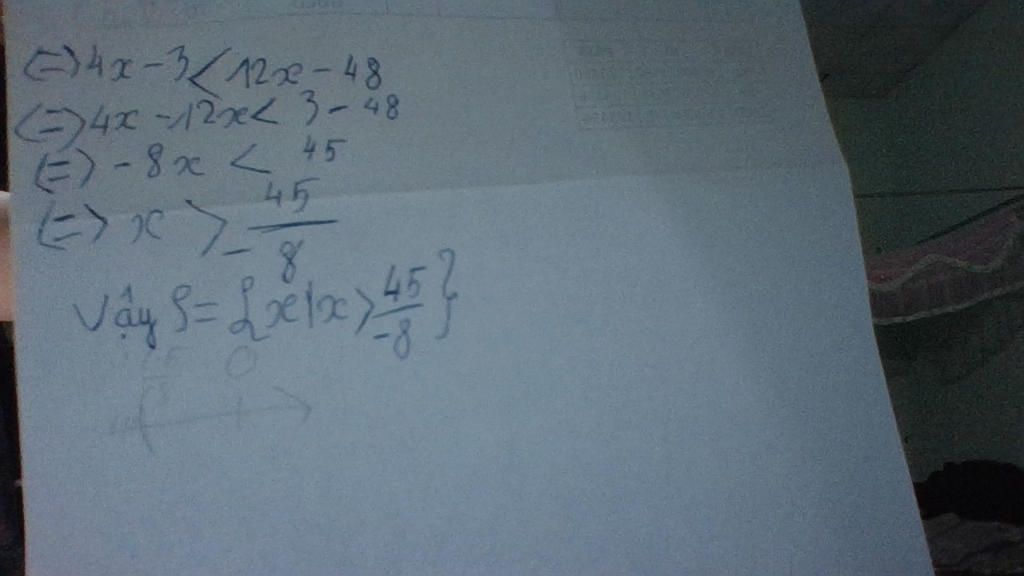 (=) 4x - 3 < 12x - 48
(=) 4x - 12x < 3 - 48
(=) - 8x < 45
(=) x > 45/-8
Vậy S = {x|x > 45/-8}
0